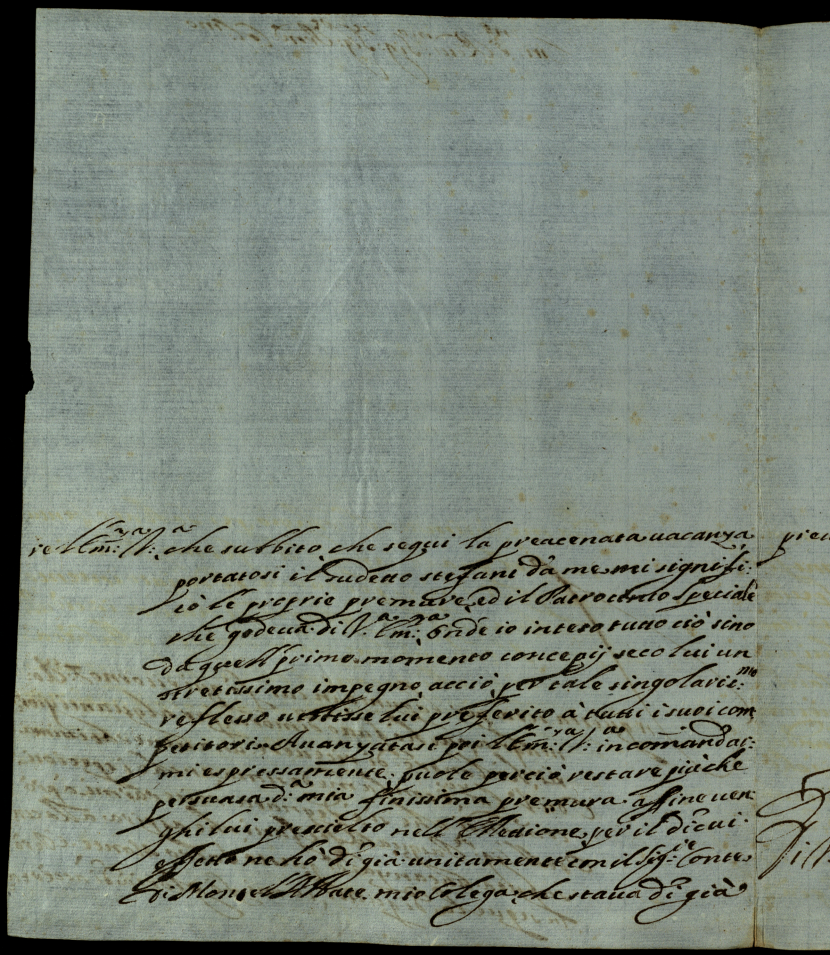 re l'Em:ᵃ V:ᵃ che subbito che seguì la preacenata uacanza
portatosi il sudetto stefani dà me mi signifi:
cò le proprie premure, ed il Patrocinio speciale
che godeua di V:ᵃ Em:ᶻᵃ onde io inteso tutto ciò sino
da quell primo momento concepij seco lui un
stretissimo impegno acciò per tale singolariss:ᵐᵒ
reflesso uenisse lui preferito à tutti i suoi com
petitori. Auanzatasi poi l'Em:ᶻᵃ V:ᵃ in comandar:
mi espressamente; puole perciò restare più che
persuasa d:ᵃ mia finissima premura affine uen
ghi lui prescielto nell'Elezione, per il di cui
effetto ne hò di già unitamente con il Sig:ʳᵉ Conte
di Montell'Abate mio Colega che staua di già